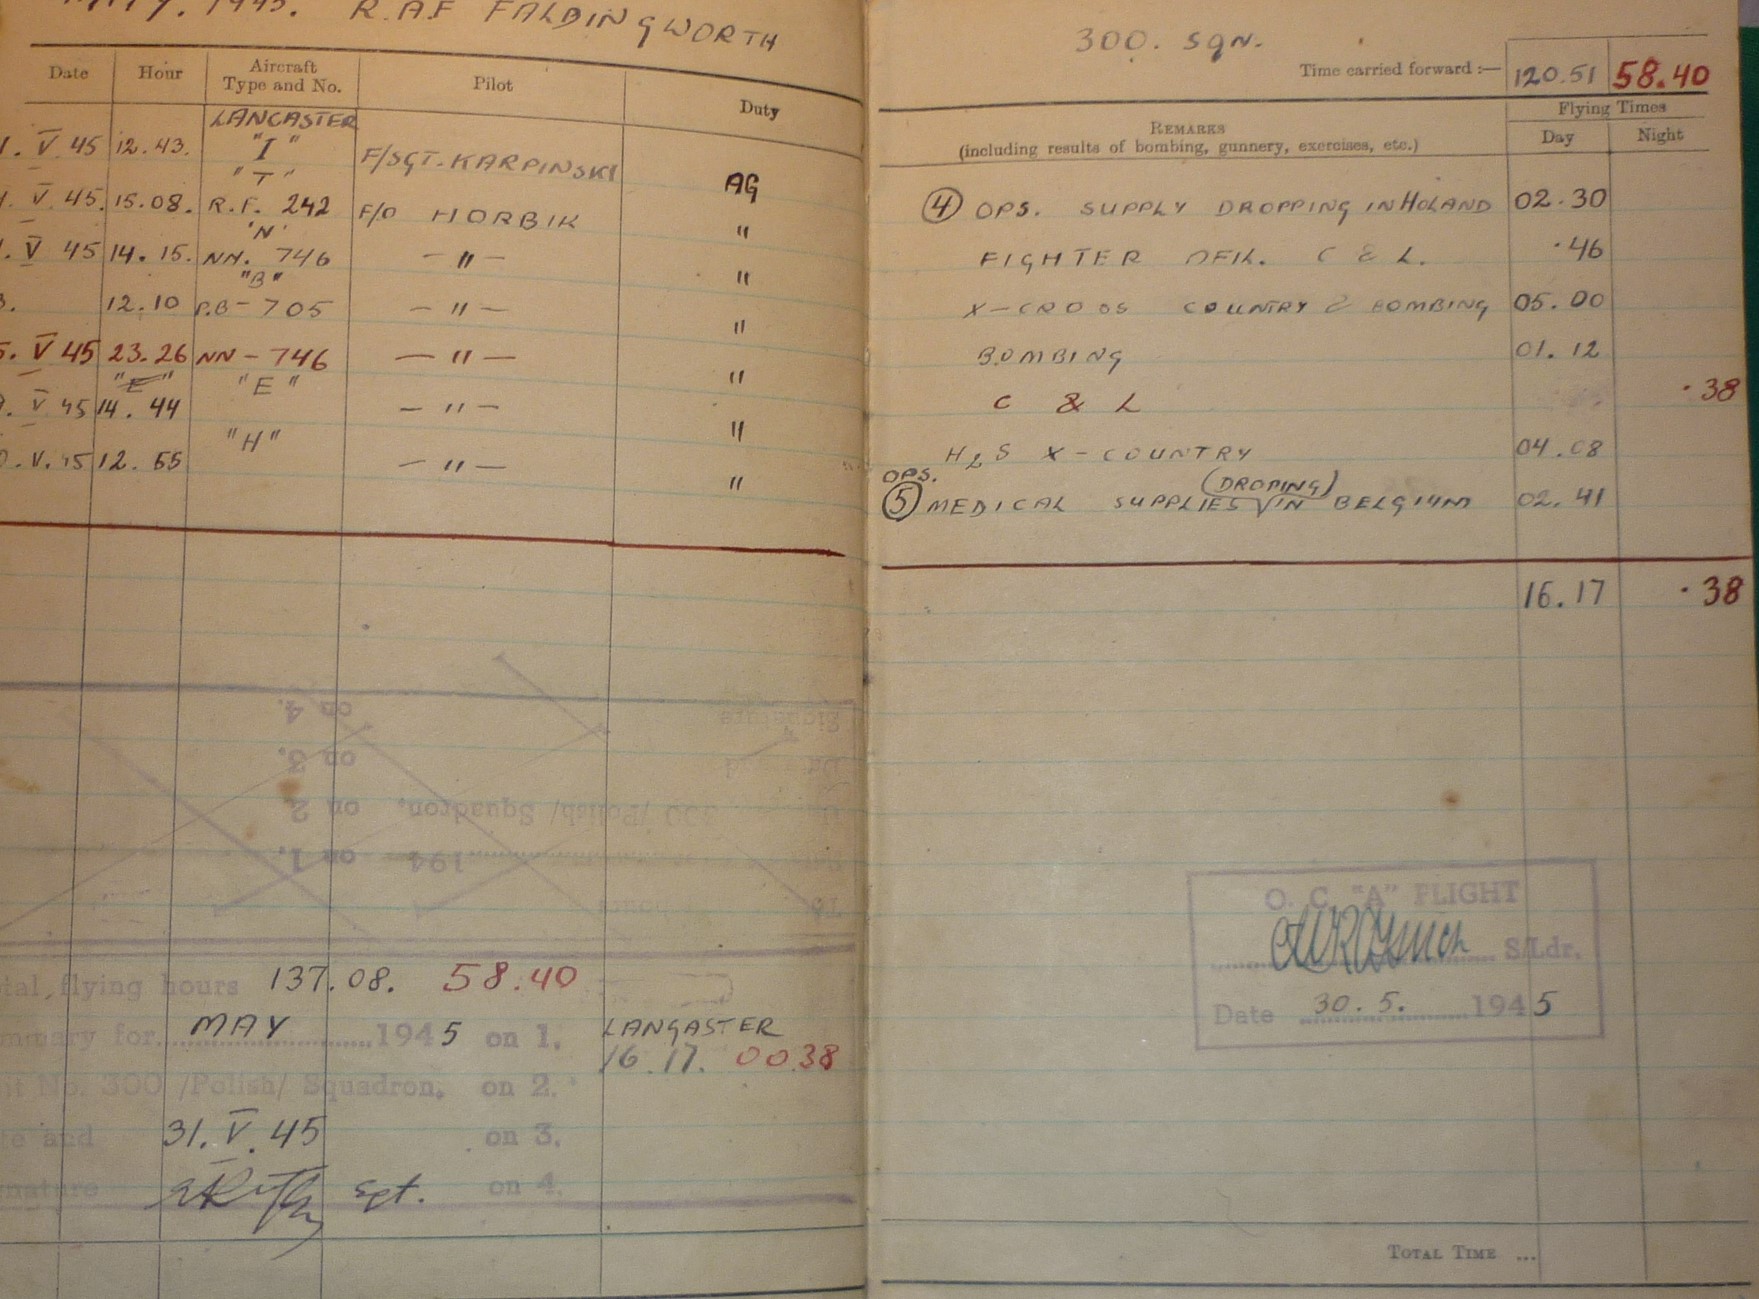 MAY. 1945. R.A.F FALDINGWORTH
Date Hour Aircraft Type and No. Pilot Duty
LANCASTER
. V 45 12.43. "I" F/SGT. KARPINSKI AG
"T"
. V 45. 15.08. R.F. 242 F/O HORBIK "
'N'
. V 45 14.15. NN. 746 — " — "
"B"
. 12.10 P.B — 705 — " — "
. V 45 23.26 NN — 746 — " — "
"E" "E"
. V 45 14.44 — " — "
"H"
. V. 45 12.55 — " — "
on 4. Signature
on 3.
on 2 300 /Polish/ Squadron.
on 1. 194
total flying hours 137.08. 58.40
summary for MAY 1945 on 1. LANCASTER
16.17. 00.38
No. 300 /Polish/ Squadron. on 2.
and 31. V. 45 on 3.
Sgt. on 4.
300. SQN.
Time carried forward :— 120.51 58.40
Flying Times
REMARKS
(including results of bombing, gunnery, exercises, etc.) Day Night
④ OPS. SUPPLY DROPPING IN HOLAND 02.30
FIGHTER C & L. .46
X — CROSS COUNTRY & BOMBING 05.00
BOMBING 01.12
C & L .38
H2S X — COUNTRY 04.08
OPS. (DROPING)
⑤ MEDICAL SUPPLIES IN BELGIUM 02.41
16.17 .38
O. C. "A" FLIGHT
S/Ldr.
Date 30.5. 1945
TOTAL TIME ...